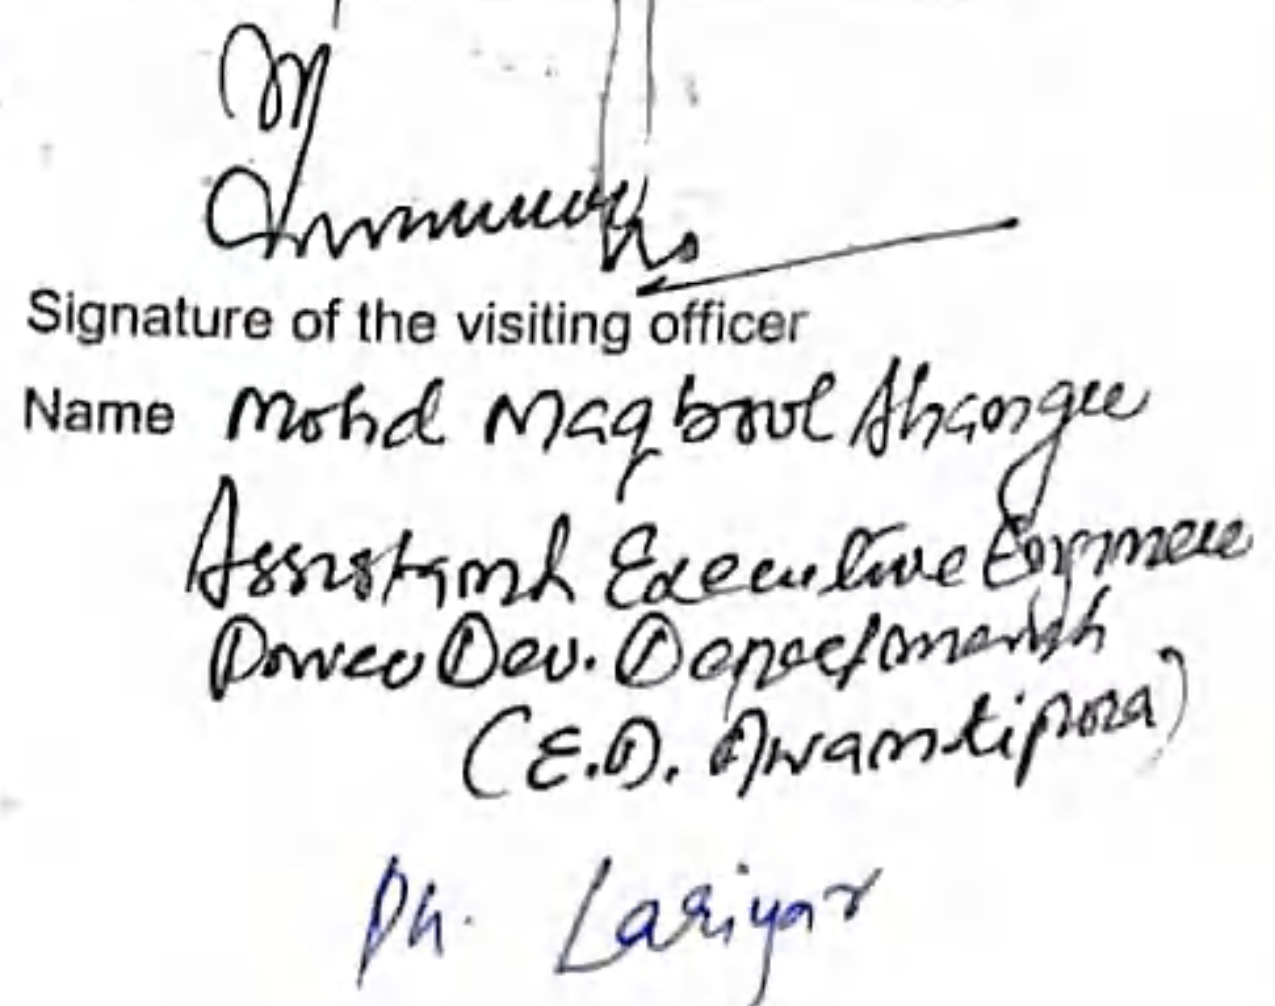 Signature of the visiting officer
Name Mohd Maqbool Ahanger
Assistant Executive Engineer
Power Dev. Department
(E.D. Awantipora)
Ph. Lariyar